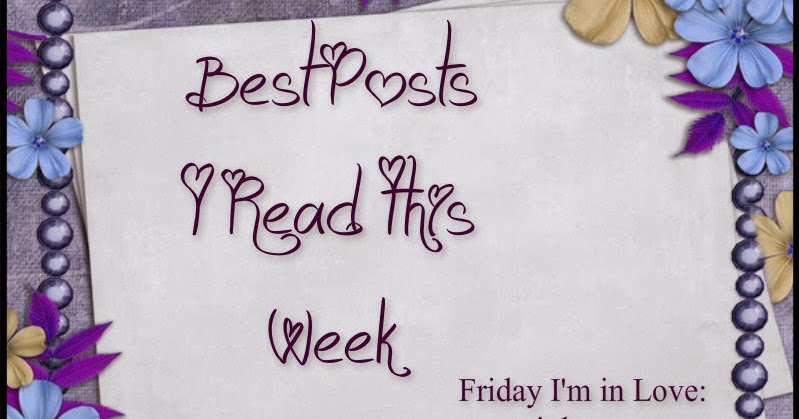 Best Posts
I Read This
Week
Friday I'm in Love: